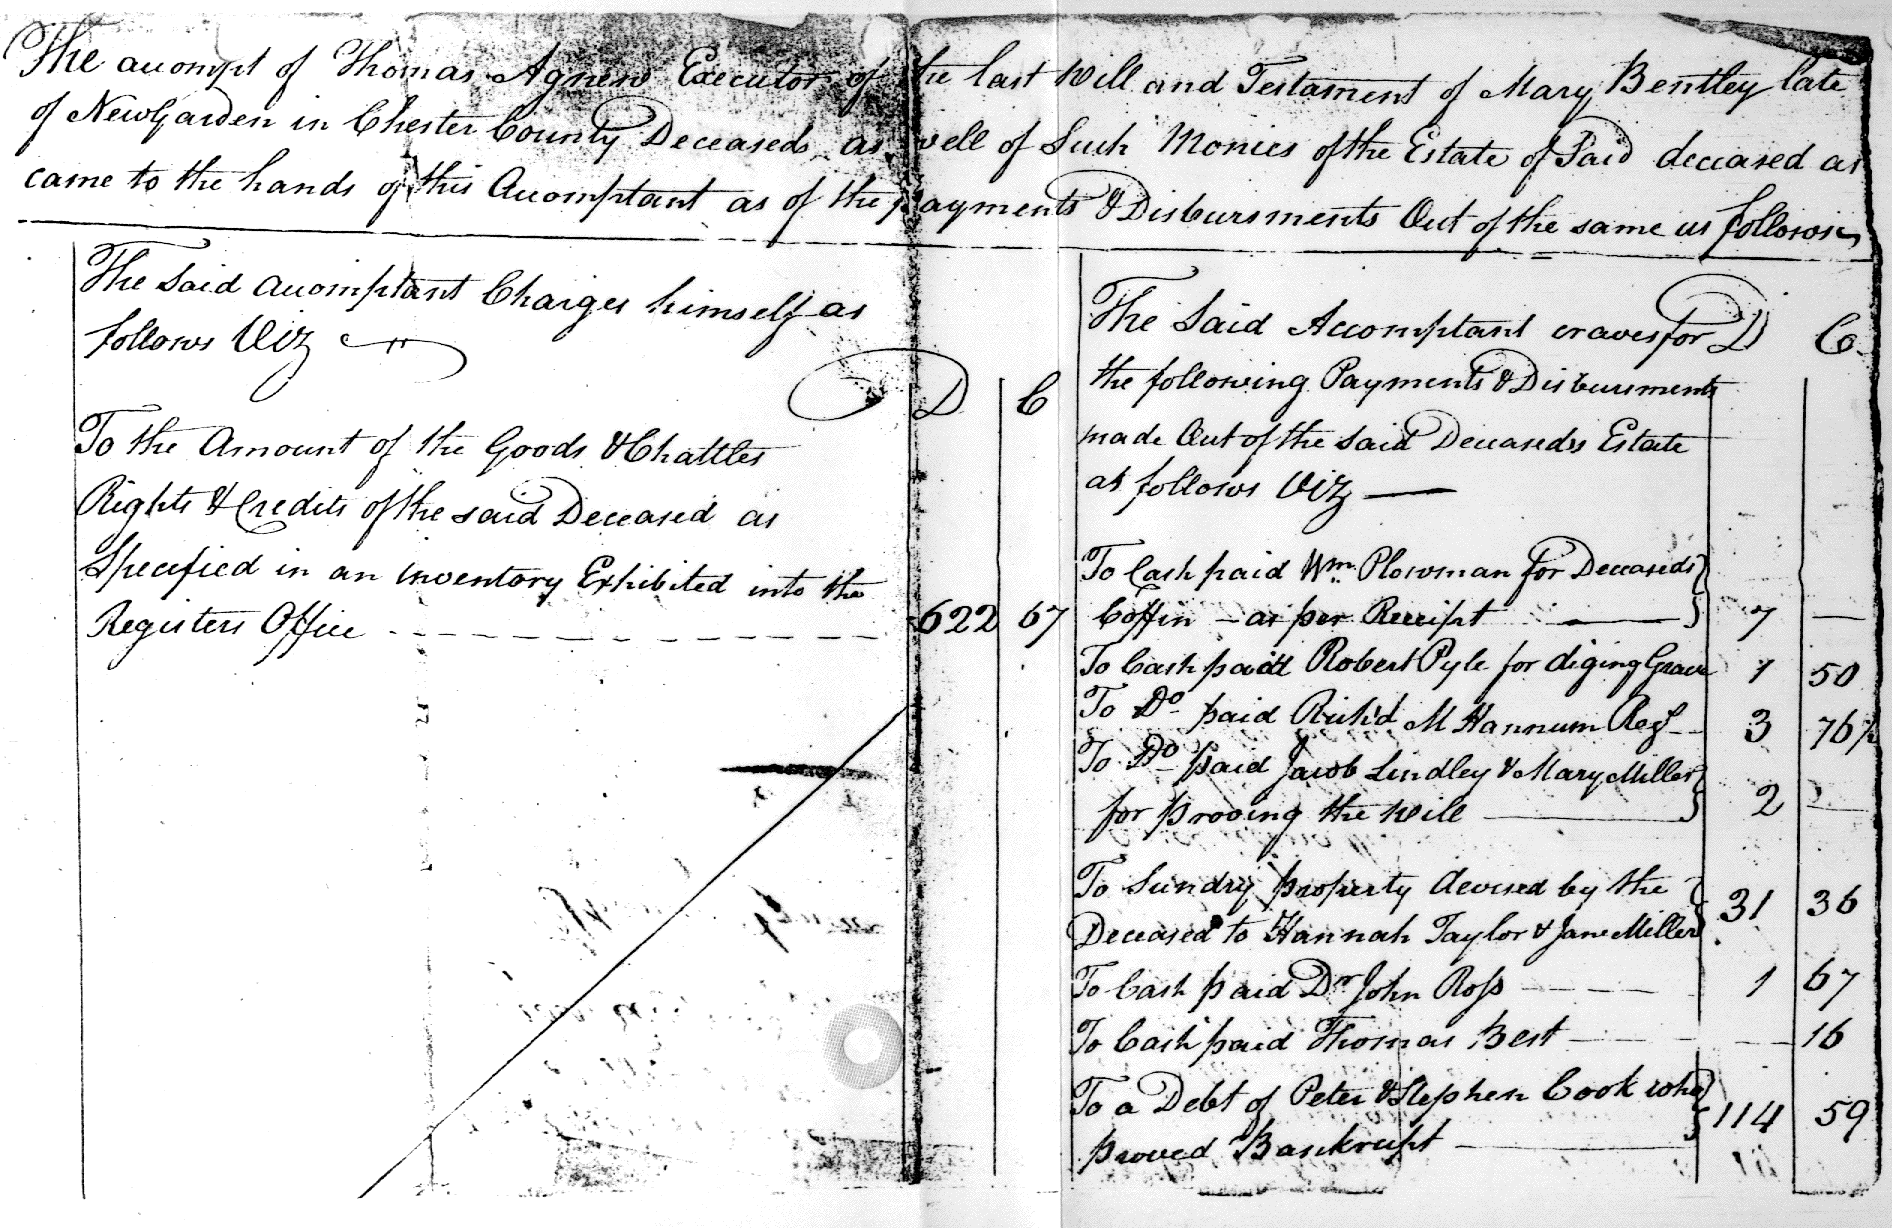 The accompt of Thomas Agnew Executor of the last Will and Testament of Mary Bentley late
of NewGarden in Chester County Deceased as well of Such Monies of the Estate of Said deceased as
came to the hands of this Accomptant as of the payments & Disbursments Out of the same as follows
The Said accomptant Charges himself as
follows Viz
D C
To the Amount of the Goods & Chattles
Rights & Credits of the said Deceased as
Specified in an inventory Exhibited into the
Registers Office 622 67
The Said Accomptant craves for D C
the following Payments & Disbursments
made Out of the said Deceaseds Estate
as follows Viz
To Cash paid Wm. Plowman for Deceaseds
Coffin - as per Receipt 7 —
To Cash paid Robert Pyle for diging Grave 1 50
To Do paid Richd M Hannum Regr 3 76½
To Do paid Jacob Lindley & Mary Miller
for prooving the Will 2 —
To Sundry property devised by the
Deceased to Hannah Taylor & Jane Miller 31 36
To Cash paid Dr John Ross 1 67
To Cash paid Thomas Best — 16
To a Debt of Peter & Stephen Cook who
proved Bankrupt 114 59